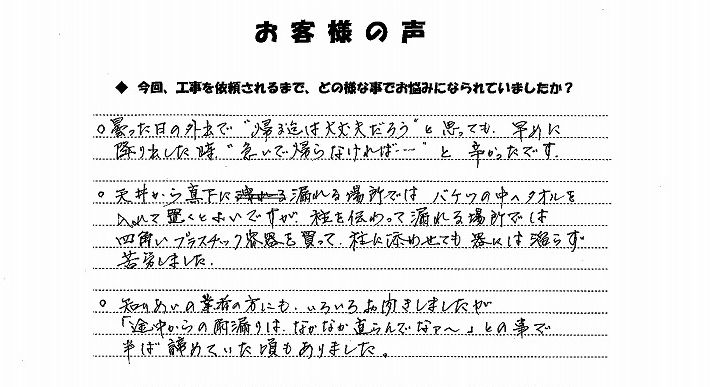 お客様の声
◆ 今回、工事を依頼されるまで、どの様な事でお悩みになられていましたか?
○曇った日の外出で“帰る迄は大丈夫だろう”と思っても、早めに
降り出した時、“急いで帰らなければ……”と 辛かったです.
○ 天井から真下に漏れる場所では バケツの中へタオルを
入れて置くとよいですが、柱を伝わって漏れる場所では
四角いプラスチック容器を買って、柱に添わせても 器には溜らず
苦労しました.
○ 知りあいの業者の方にも、いろいろお聞きしましたが
「途中からの雨漏りは、なかなか直らんでなァ～」との事で
半ば 諦めていた頃もありました。